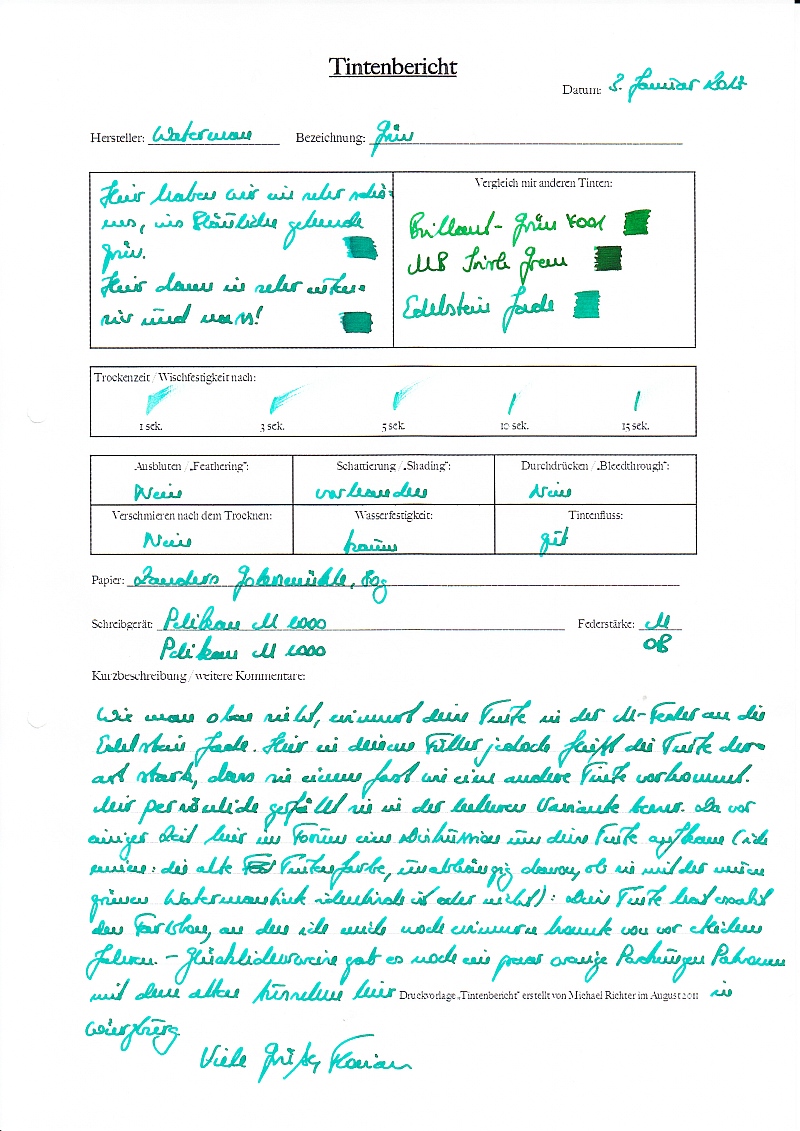 Tintenbericht
Datum: 3. Januar 2012
Hersteller: Waterman Bezeichnung: Grün
Hier haben wir ein sehr schö-
nes, ins Bläuliche gehende
Grün.
Hier dann in sehr
und
Vergleich mit anderen Tinten:
Brillant-Grün 4001
MB Irish Green
Edelstein Jade
Trockenzeit / Wischfestigkeit nach:
1 sek. 3 sek. 5 sek. 10 sek. 15 sek.
Ausbluten / „Feathering“: Schattierung / „Shading“: Durchdrücken / „Bleedthrough“:
Nein vorhanden Nein
Verschmieren nach dem Trocknen: Wasserfestigkeit: Tintenfluss:
Nein kaum gut
Papier: Zanders Gohrsmühle, 80g
Schreibgerät: Pelikan M 1000 Federstärke: M
Pelikan M 1000 OB
Kurzbeschreibung / weitere Kommentare:
Wie man oben sieht, erinnert diese Tinte in der M-Feder an die
Edelstein Jade. Hier in diesem Füller jedoch fließt die Tinte der-
art stark, dass sie einem fast wie eine andere Tinte vorkommt.
Mir persönlich gefällt sie in der helleren Variante besser. Da vor
einiger Zeit hier im Forum eine Diskussion um diese Tinte aufkam (ich
meine: die alte Tintenfarbe, unabhängig davon, ob sie mit der neuen
grünen Watermantinte identisch ist oder nicht): Diese Tinte hat exakt
den Farbton, an den ich mich noch erinnern konnte von vor etlichen
Jahren. - Glücklicherweise gab es noch ein paar orange Packungen Patronen
mit dem alten hier Druckvorlage „Tintenbericht“ erstellt von Michael Richter im August 2011 in
Würzburg.
Viele Grüße, Florian